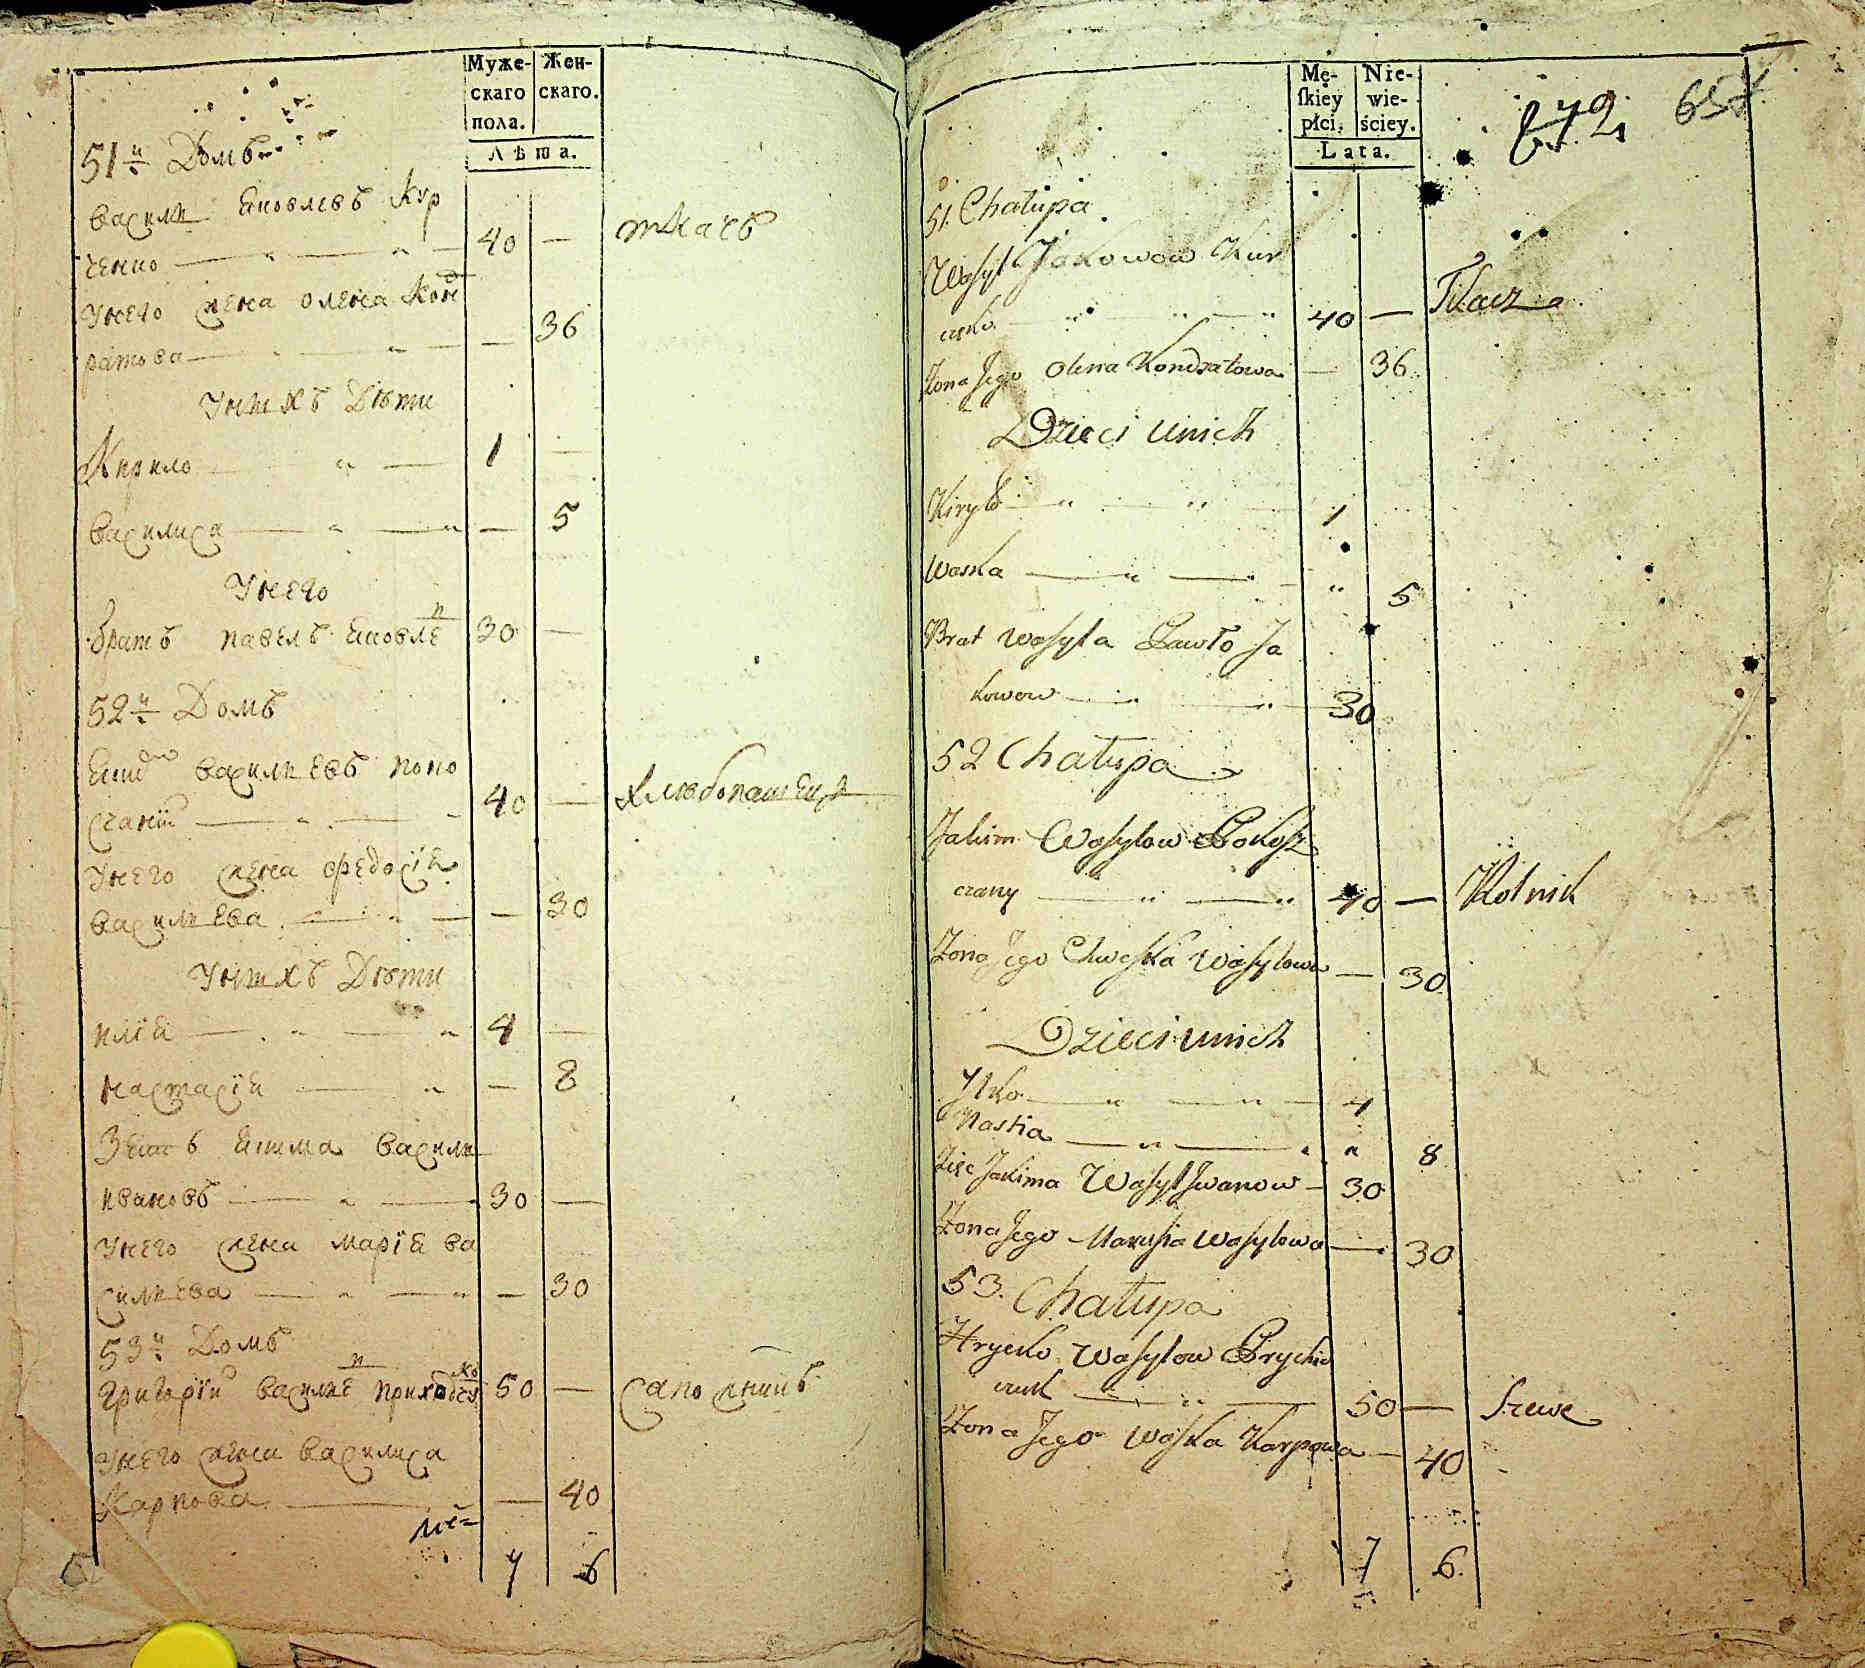 Муже-
скаго
пола.
Жен-
скаго.
Лѣта.
51й Домъ
Василй Яковлевъ Кур
ченко 40 — ткачъ
Унего жена Олена Конд
ратова — 36
Унихъ Дѣти
Кирило 1 —
Василиса — 5
Унего
братъ Павелъ Яковле 30 —
52й Домъ
Яким Василиевъ поко
счаний 40 — хлѣбопашецъ
Унего жена Федосія
Василиева — 30
Унихъ Дѣти
Илія 4 —
Настасія — 8
Зять Якима Васили
Ивановъ 30 —
Унего жена Марія Ва
силиева — 30
53й Домъ
Григорій Василие 50 — Сапожникъ
Унего жена Василиса
Карпова — 40
7 6
Mę-
ſkiey
płci.
Nie-
wie-
ściey.
Lata.
672
657
51. Chałupa
Wasyl Jakowow Kur
czeko 40 — Tkacz
Żona Jego Olena Kondratowa — 36
Dzieci unich
Kiryło 1
Waska " 5
Brat Wasyla Pawło Ja
kowow 30
52 Chałupa
Jakim Wasylow Pokosz
czany 40 — Rolnik
Żona Jego Chweska Wasylowa — 30
Dzieci unich
Ilko 4
Nastia " 8
Zięc Jakima Wasyl Iwanow — 30
Żona Jego Marusia Wasylowa — 30
53. Chałupa
Hrycko Wasylow Prychid
czuk 50 — Szewc
Żona Jego Waska Karpowa — 40
7 6